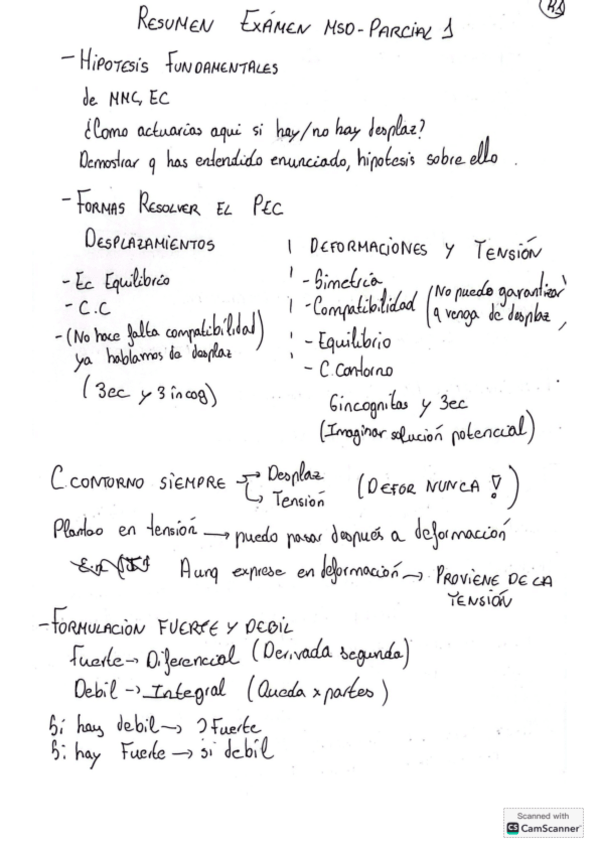 R1
RESUMEN EXÁMEN MSD-PARCIAL 1
- HIPOTESIS FUNDAMENTALES
de MMC, EC
¿Como actuarias aqui si hay/no hay desplaz?
Demostrar q has entendido enunciado, hipotesis sobre ello.
- FORMAS RESOLVER EL PEC
DESPLAZAMIENTOS
- Ec Equilibrio
- C.C
- (No hace falta compatibilidad)
ya hablamos de desplaz
(3ec y 3 incog)
DEFORMACIONES Y TENSIÓN
- Simetria
- Compatibilidad (No puedo garantizar
q venga de desplaz,
- Equilibrio
- C. Contorno
6incognitas y 3ec
(Imaginar solución potencial)
C.CONTORNO SIEMPRE → Desplaz
↳ Tensión
(DEFOR NUNCA!)
Planteo en tensión → puedo pasar después a deformación
Aunq exprese en deformación → PROVIENE DE LA
TENSIÓN
- FORMULACIÓN FUERTE Y DEBIL
Fuerte → Diferencial (Derivada segunda)
Debil → Integral (Queda x partes)
Si hay debil → ? Fuerte
Si hay Fuerte → si debil
Scanned with
CS CamScanner